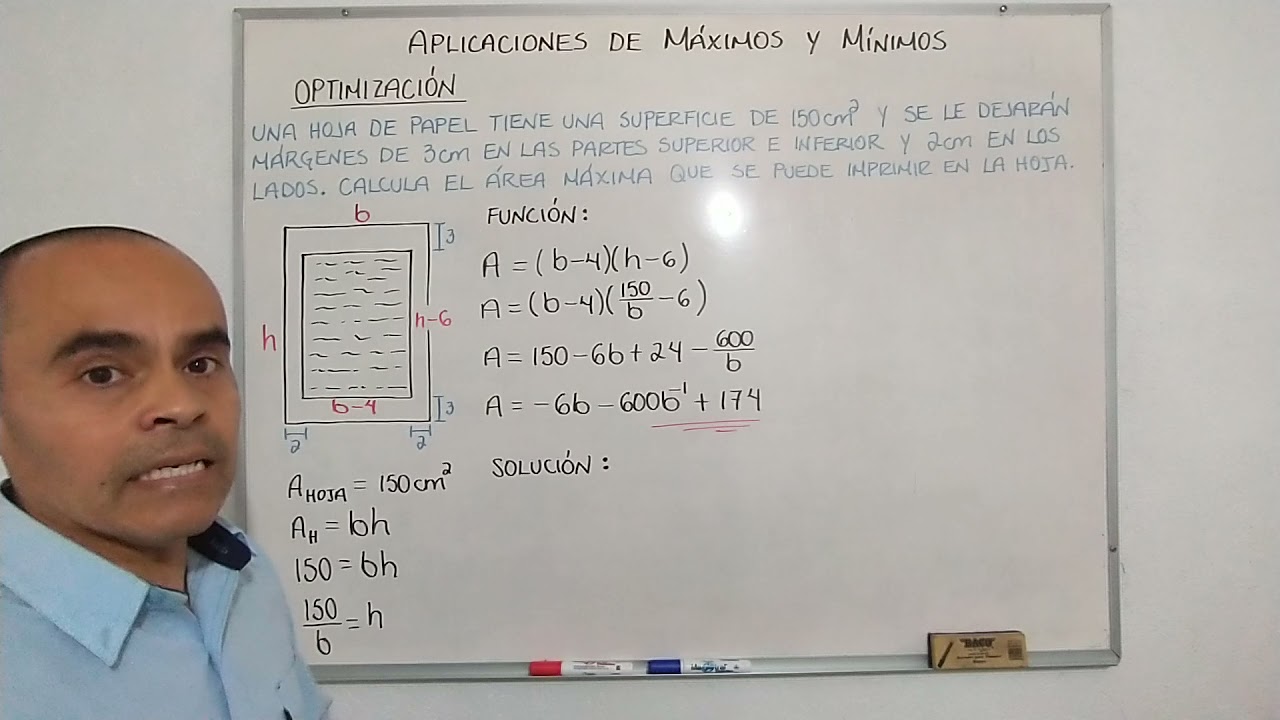 APLICACIONES DE MÁXIMOS Y MÍNIMOS
OPTIMIZACIÓN
UNA HOJA DE PAPEL TIENE UNA SUPERFICIE DE 150cm² Y SE LE DEJARÁN
MÁRGENES DE 3cm EN LAS PARTES SUPERIOR E INFERIOR Y 2cm EN LOS
LADOS. CALCULA EL ÁREA MÁXIMA QUE SE PUEDE IMPRIMIR EN LA HOJA.
b
3
h
h-6
b-4
3
2
2
A_HOJA = 150cm²
A_H = bh
150 = bh
150/b = h
FUNCIÓN:
A = (b-4)(h-6)
A = (b-4)(150/b - 6)
A = 150 - 6b + 24 - 600/b
A = -6b - 600b⁻¹ + 174
SOLUCIÓN:
"BACO"